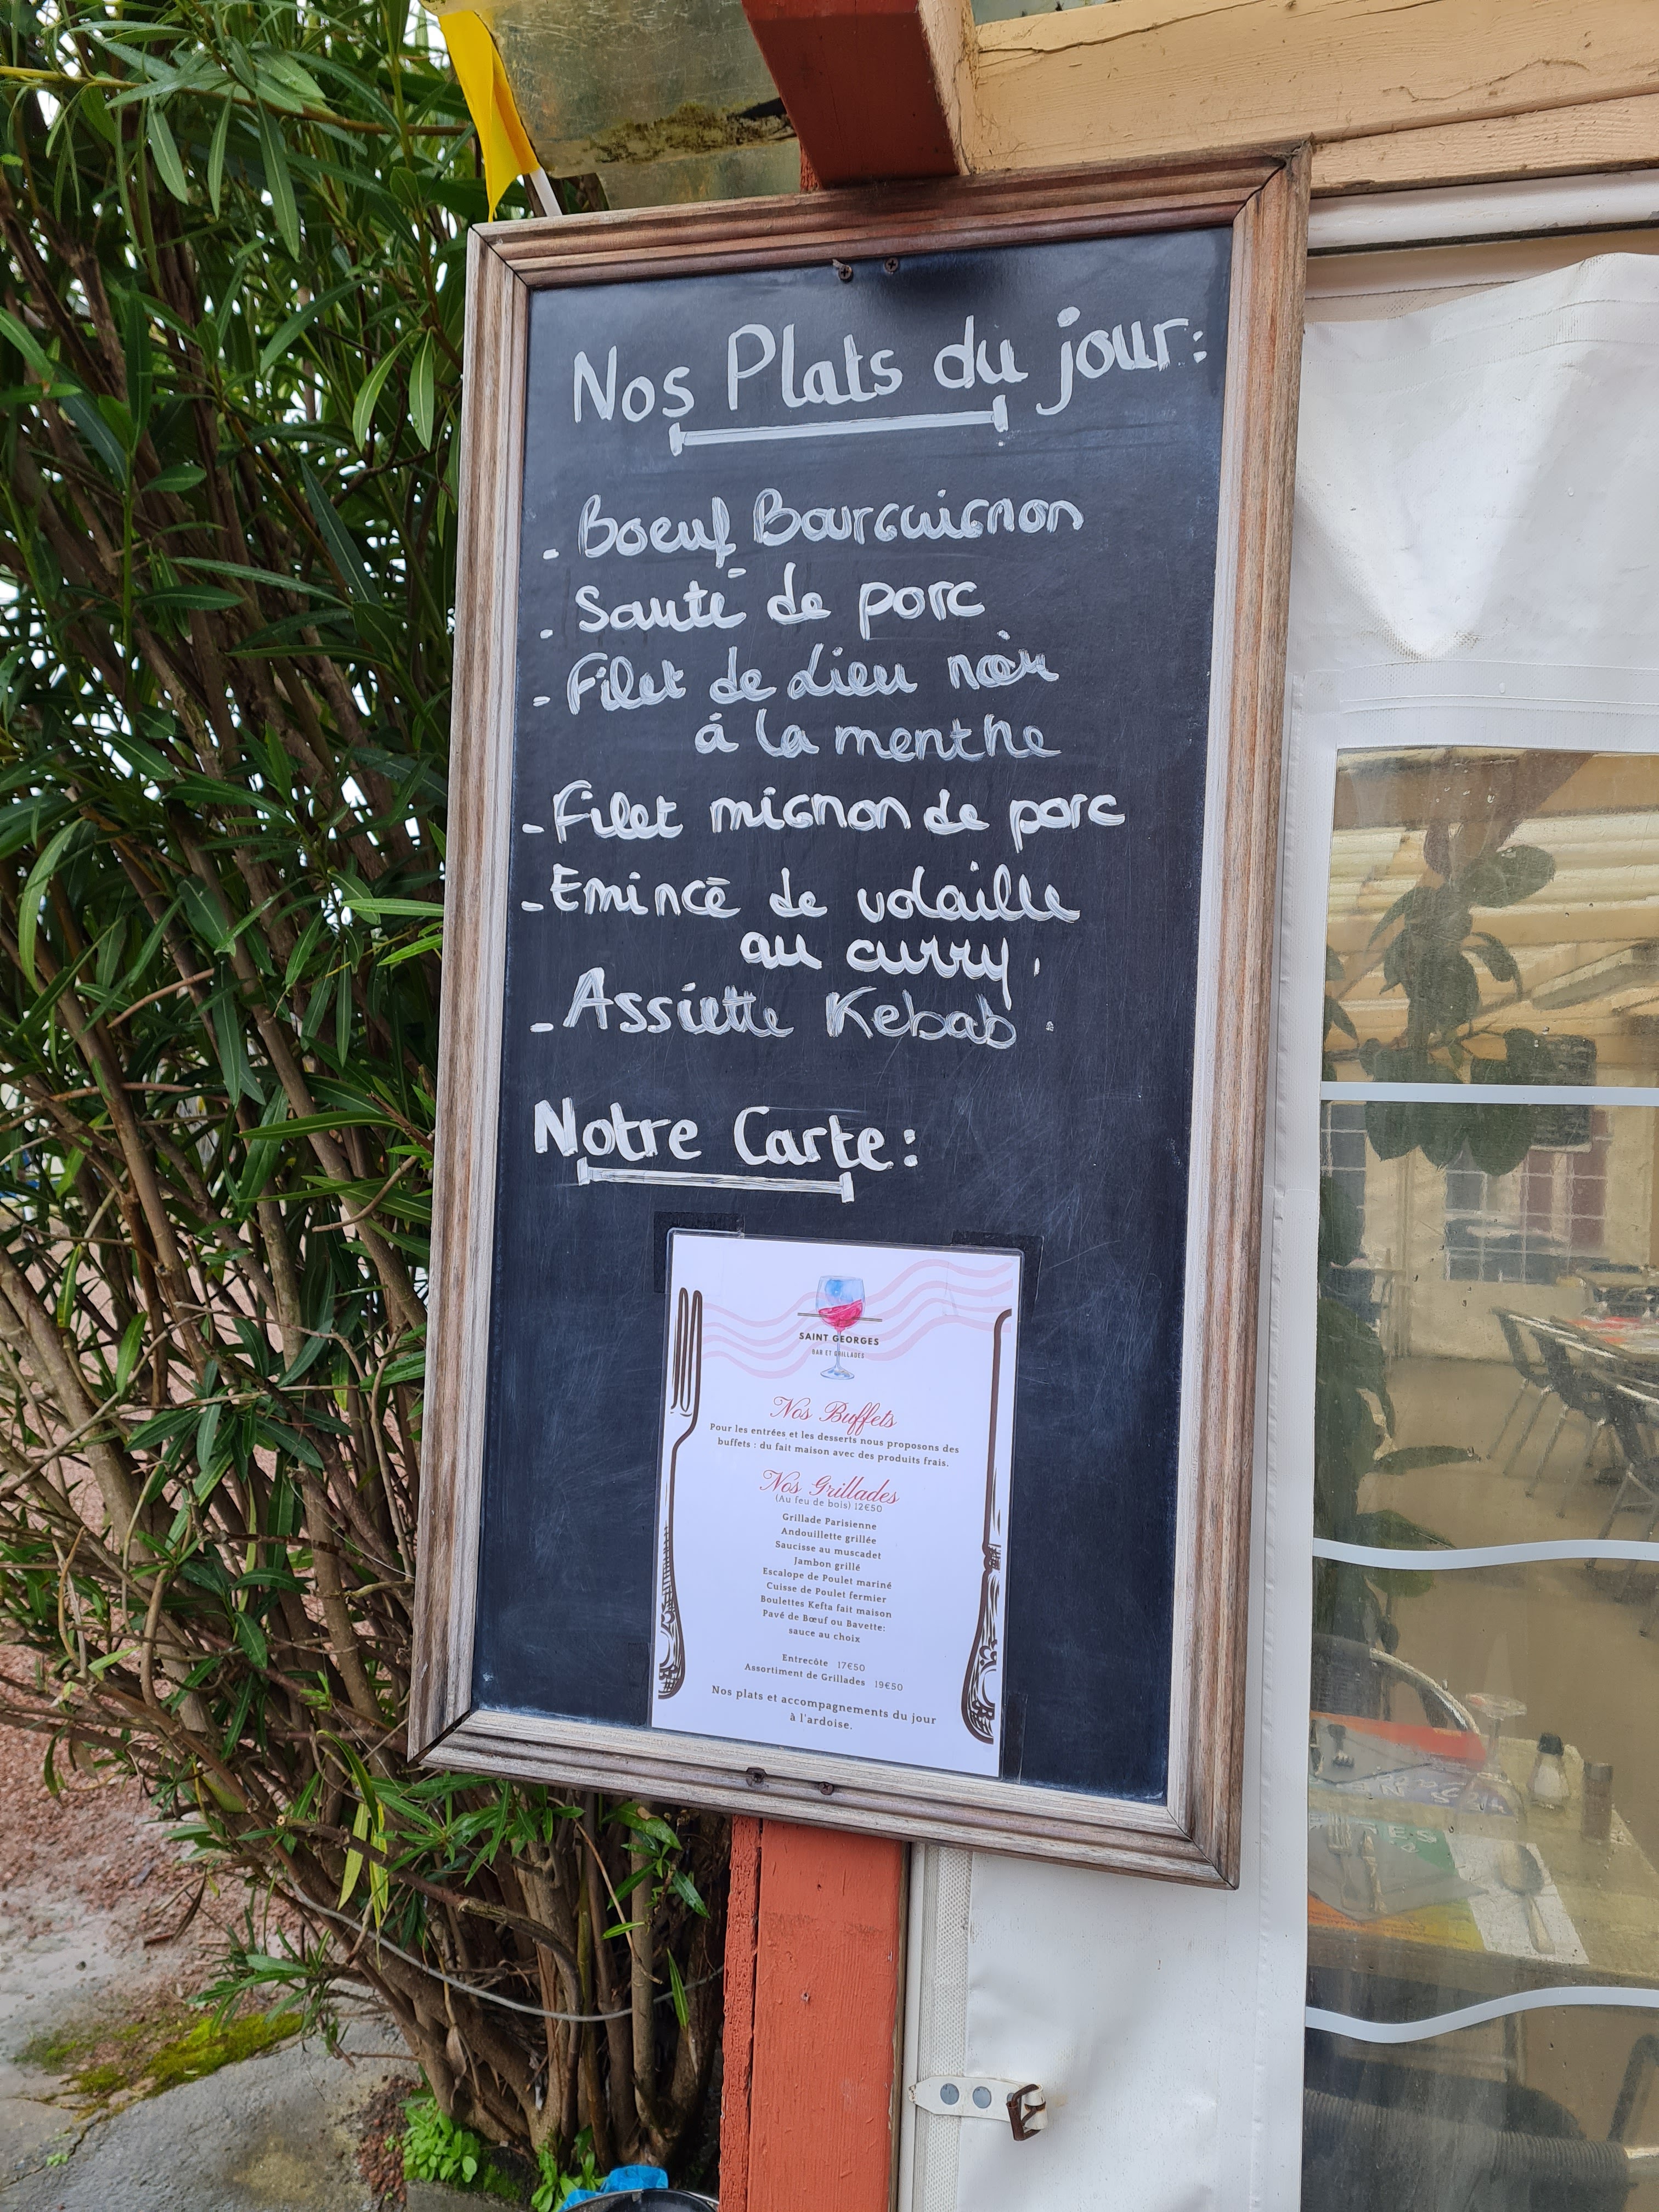 Nos Plats du jour:
- Boeuf Bourguignon
- Sauté de porc
- Filet de Lieu noir
à la menthe
- Filet mignon de porc
- Emincé de volaille
au curry.
- Assiette Kebab.
Notre Carte:
SAINT GEORGES
BAR ET GRILLADES
Nos Buffets
Pour les entrées et les desserts nous proposons des
buffets : du fait maison avec des produits frais.
Nos Grillades
(Au feu de bois) 12€50
Grillade Parisienne
Andouillette grillée
Saucisse au muscadet
Jambon grillé
Escalope de Poulet mariné
Cuisse de Poulet fermier
Boulettes Kefta fait maison
Pavé de Bœuf ou Bavette:
sauce au choix
Entrecôte 17€50
Assortiment de Grillades 19€50
Nos plats et accompagnements du jour
à l'ardoise.